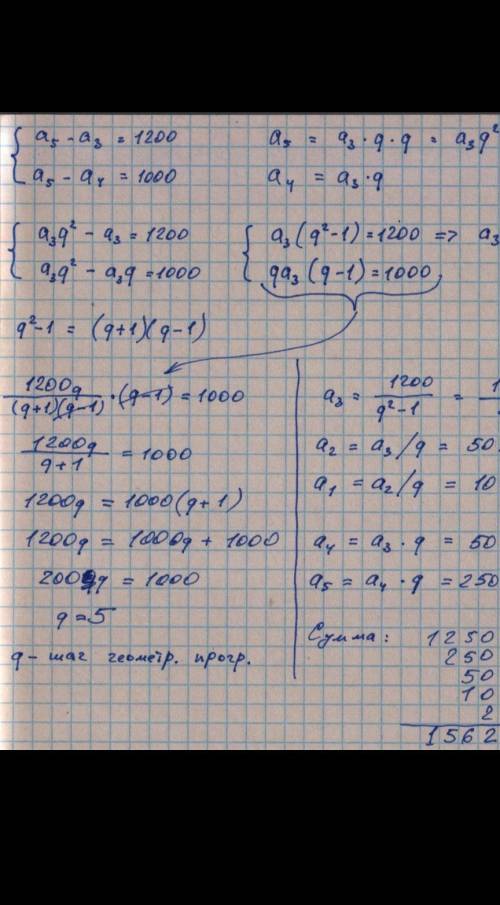 a₅ - a₃ = 1200
a₅ - a₄ = 1000
a₅ = a₃ · q · q = a₃q²
a₄ = a₃ · q
a₃q² - a₃ = 1200
a₃q² - a₃q = 1000
a₃(q²-1) = 1200 => a₃
qa₃(q-1) = 1000
q²-1 = (q+1)(q-1)
1200q / (q+1)(q-1) · (q-1) = 1000
1200q / q+1 = 1000
1200q = 1000(q+1)
1200q = 1000q + 1000
200q = 1000
q = 5
q - шаг геометр. прогр.
a₃ = 1200 / q²-1 = 1
a₂ = a₃/q = 50
a₁ = a₂/q = 10
a₄ = a₃ · q = 50
a₅ = a₄ · q = 250
Сумма: 1250
250
50
10
2
1562